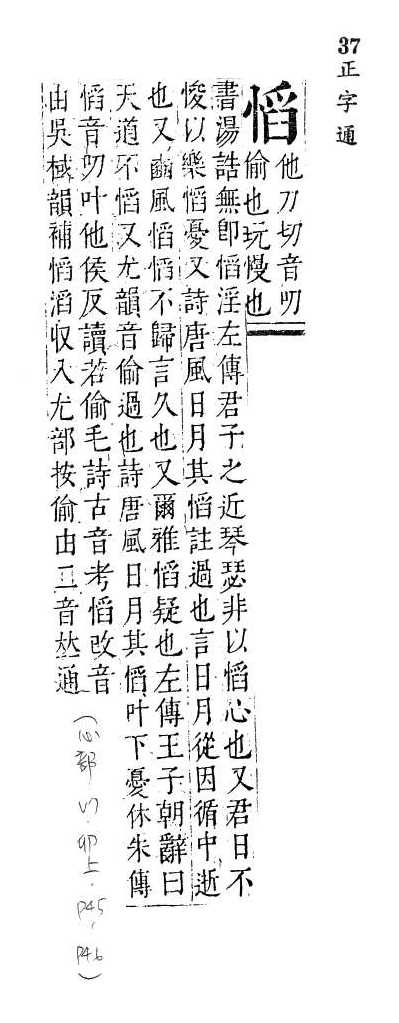 37正字通
慆
他刀切音叨
偷也玩慢也
書湯誥無卽慆淫左傳君子之近琴瑟非以慆心也又君曰不
悛以樂慆憂又詩唐風日月其慆註過也言日月從因循中逝
也又豳風慆慆不歸言久也又爾雅慆疑也左傳王子朝辭曰
天道不慆又尤韻音偷過也詩唐風日月其慆叶下憂休朱傳
慆音叨叶他侯反讀若偷毛詩古音考慆改音
由吳棫韻補慆滔収入尤部按偷由二音𠀤通
(心部 卯上・P45, P46)